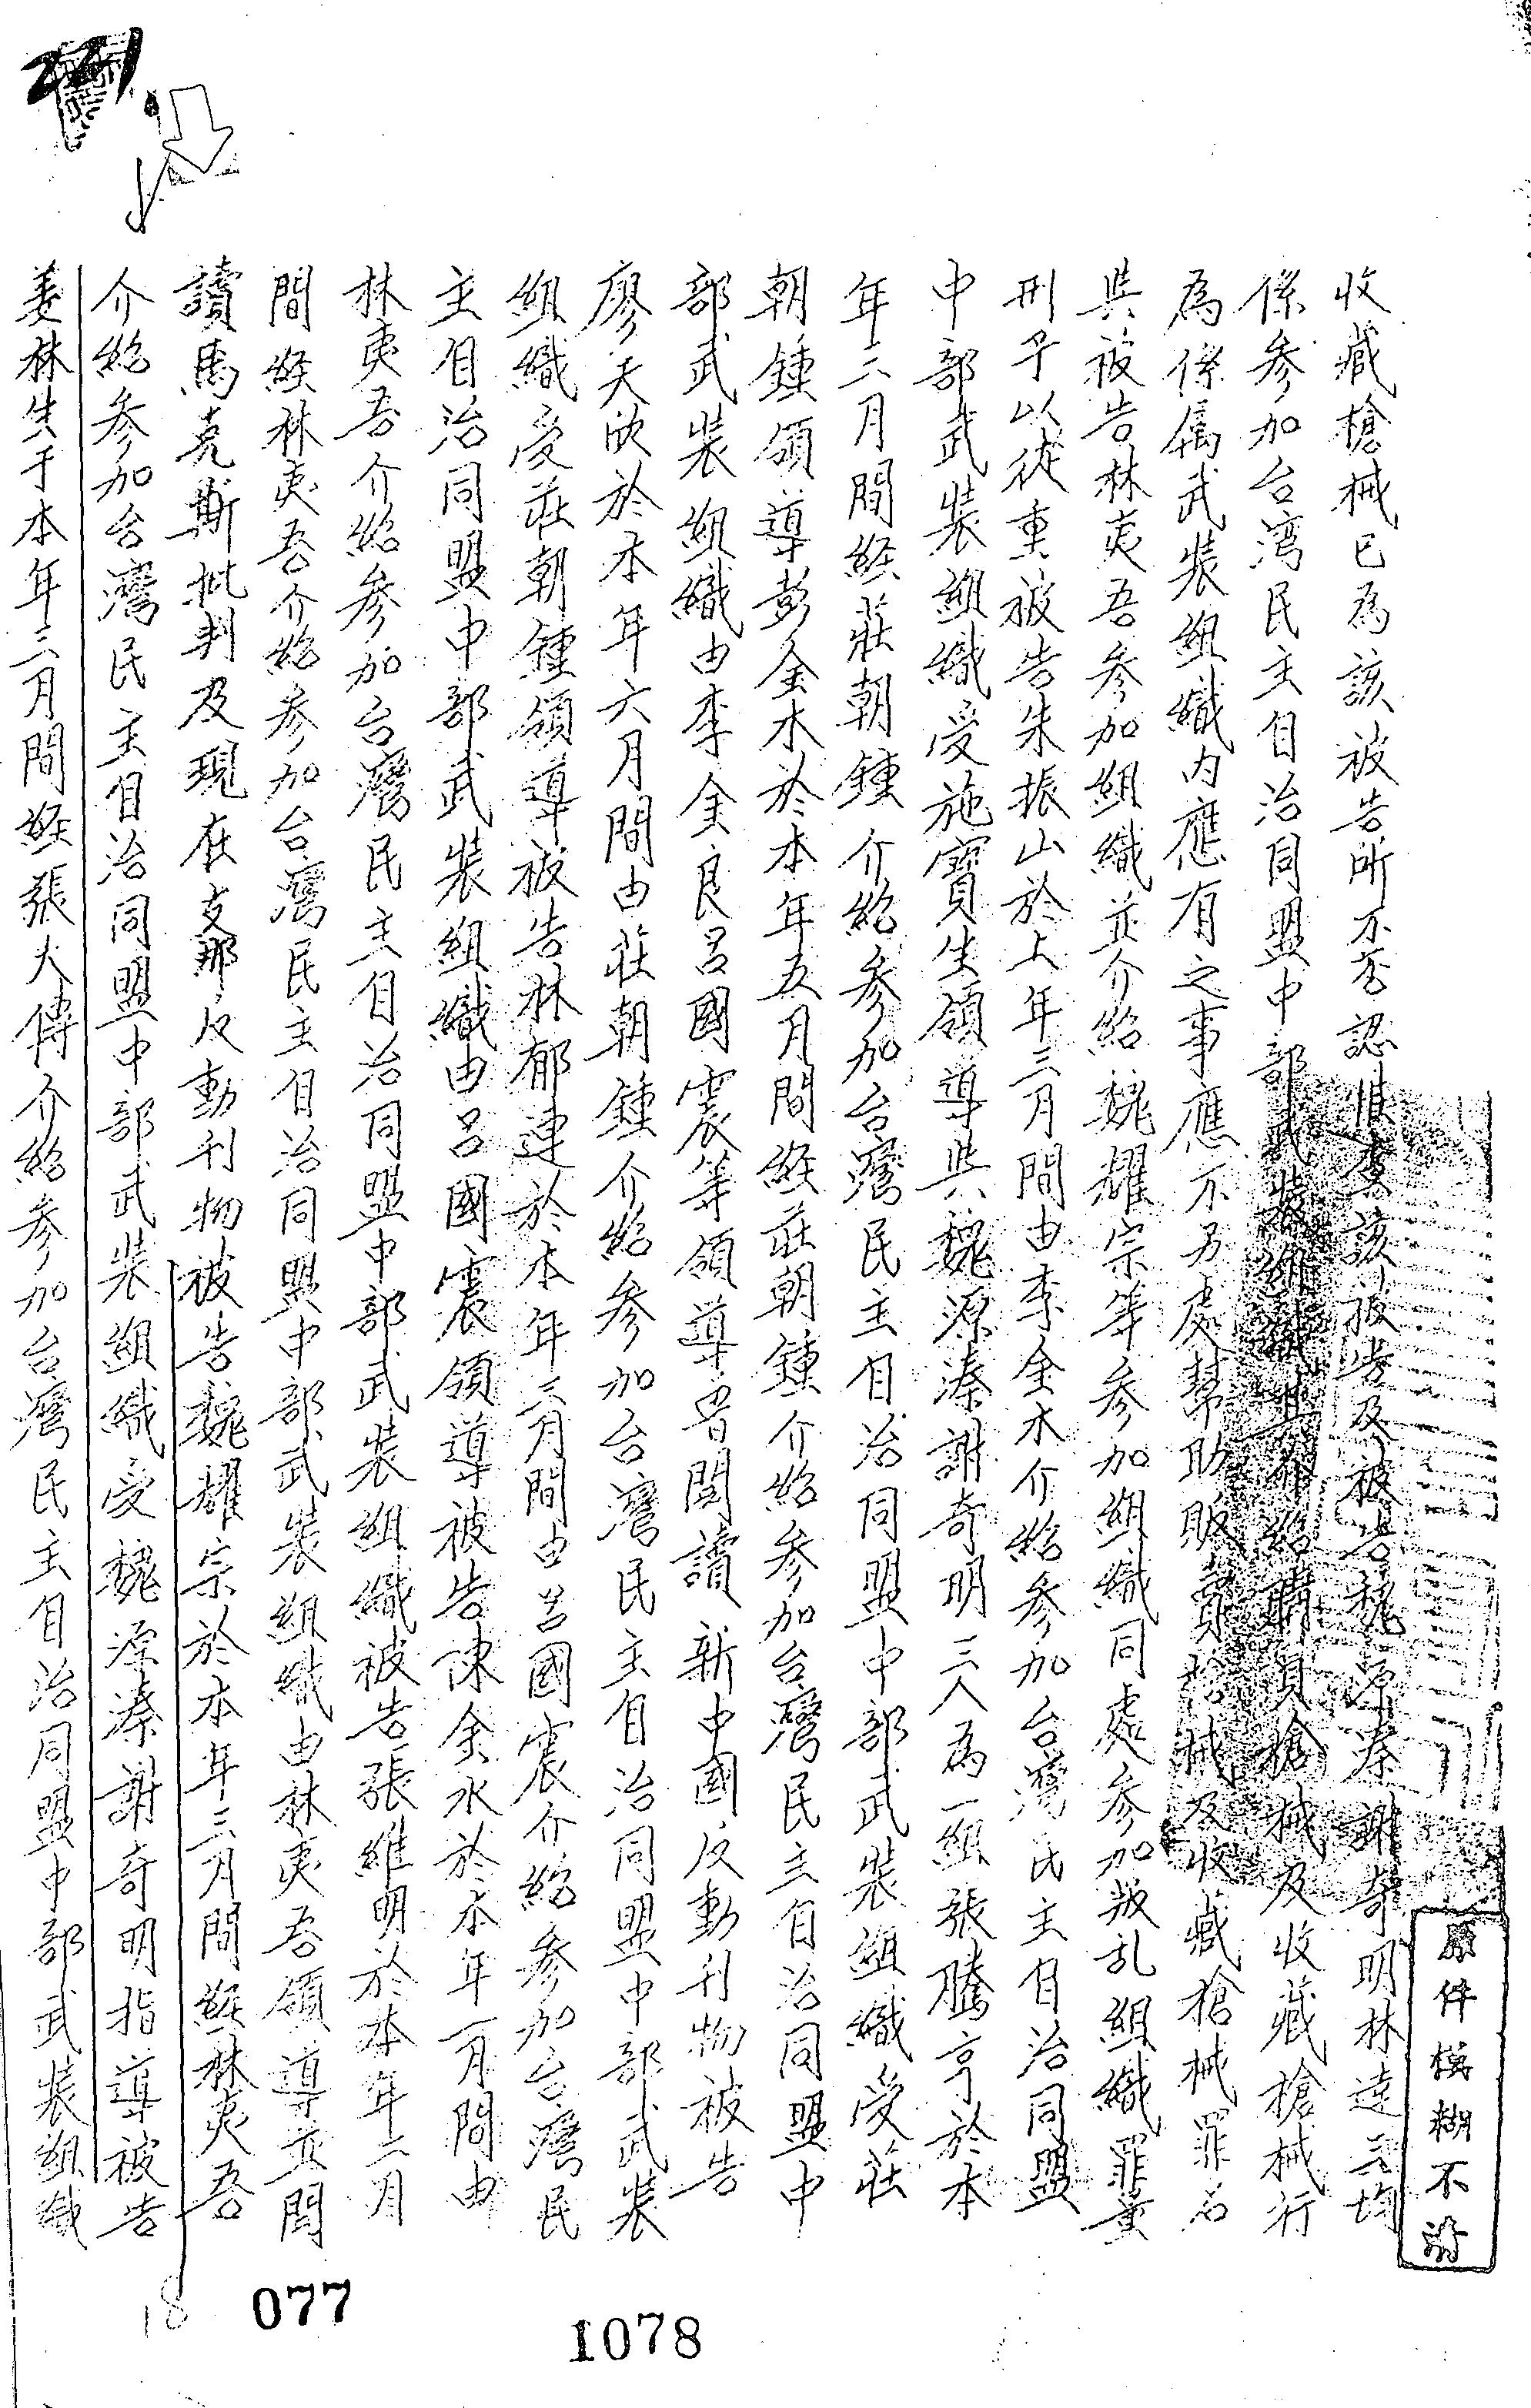 收藏槍械已為該被告所不否認惟查該被告及被告魏源溱謝奇明林達三均
係參加台湾民主自治同盟中部武裝組織其介紹購買槍械及收藏槍械行
為係屬武裝組織內應有之事應不另處幫助販賣槍械及收藏槍械罪名
與被告林夷吾參加組織並介紹魏耀宗等參加組織同處參加叛乱組織罪量
刑予以從重被告朱振山於上年三月間由李金木介紹參加台灣民主自治同盟
中部武裝組織受施寶生領導與魏源溱謝奇明三人為一組張騰亨於本
年二月間経莊朝鍾介紹參加台灣民主自治同盟中部武裝組織受莊
朝鍾領導彭金木於本年五月間経莊朝鍾介紹參加台灣民主自治同盟中
部武裝組織由李金良呂國震等領導曾閱讀新中國反動刊物被告
廖天欣於本年六月間由莊朝鍾介紹參加台灣民主自治同盟中部武裝
組織受莊朝鍾領導被告林郁連於本年三月間由呂國震介紹參加台灣民
主自治同盟中部武裝組織由呂國震領導被告陳金水於本年一月間由
林夷吾介紹參加台灣民主自治同盟中部武裝組織被告張維明於本年二月
間経林夷吾介紹參加台灣民主自治同盟中部武裝組織由林夷吾領導並閱
讀馬克斯批判及現在支那反動刊物被告魏耀宗於本年三月間経林夷吾
介紹參加台灣民主自治同盟中部武裝組織受魏源溱謝奇明指導被告
姜林先于本年三月間経張火傳介紹參加台灣民主自治同盟中部武裝組織
原件模糊不清
221.
18
077
1078